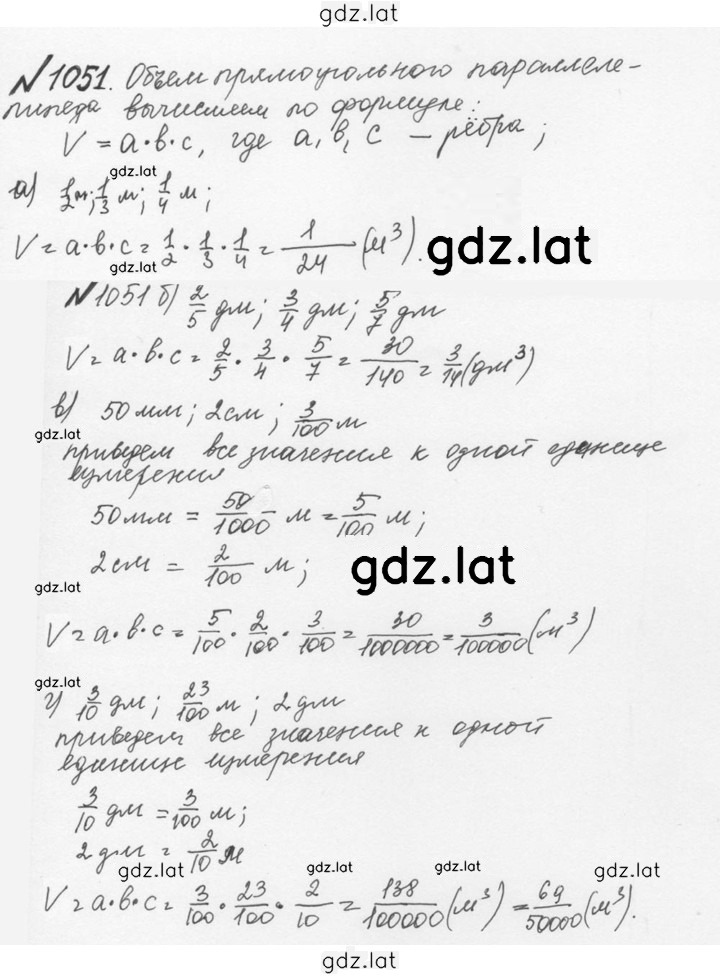 gdz.lat
№1051. Объем прямоугольного параллеле-
пипеда вычисляем по формуле:
V = a·b·c, где a, b, c – рёбра;
gdz.lat
а) 1/2 м; 1/3 м; 1/4 м;
V = a·b·c = 1/2 · 1/3 · 1/4 = 1/24 (м³).
gdz.lat
gdz.lat
№1051 б) 2/5 дм; 3/4 дм; 5/7 дм
V = a·b·c = 2/5 · 3/4 · 5/7 = 30/140 = 3/14 (дм³)
в) 50 мм; 2 см; 3/100 м
gdz.lat
приведем все значения к одной единице
измерения
50 мм = 50/1000 м = 5/100 м;
2 см = 2/100 м;
gdz.lat
gdz.lat
V = a·b·c = 5/100 · 2/100 · 3/100 = 30/1000000 = 3/100000 (м³)
gdz.lat
г) 3/10 дм; 23/100 м; 2 дм
приведем все значения к одной
единице измерения
3/10 дм = 3/100 м;
2 дм = 2/10 м
gdz.lat
gdz.lat
gdz.lat
V = a·b·c = 3/100 · 23/100 · 2/10 = 138/100000 (м³) = 69/50000 (м³).
gdz.lat